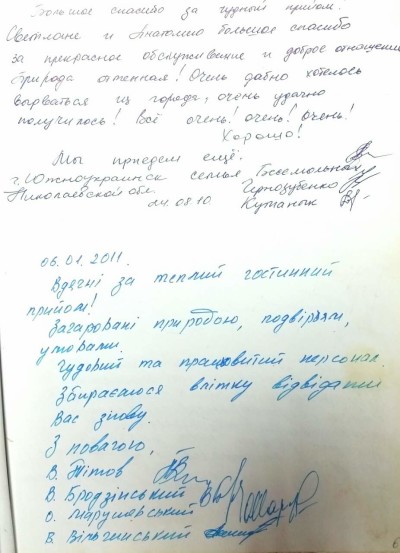 Большое спасибо за чудный прийом.
Светлане и Анатолию большое спасибо
за прекрасное обслуживание и доброе отношение
Природа отменная! Очень давно хотелось
вырваться из города, очень удачно
получилось! Всё очень! очень! Очень!
Хорошо!
Мы приедем ещё.
г. Южноукраинск семья
Николаевской обл. Чернозубенко
24.08.10
06.01.2011.
Вдячні за теплий гостинний
прийом!
Зачаровані природою, подвірям,
умовами.
Чудовий та працьовитий персонал.
Збираємося влітку відвідати
Вас знову.
З повагою,
В. Тітов
В. Бродзінський
О. Марушевський
В.